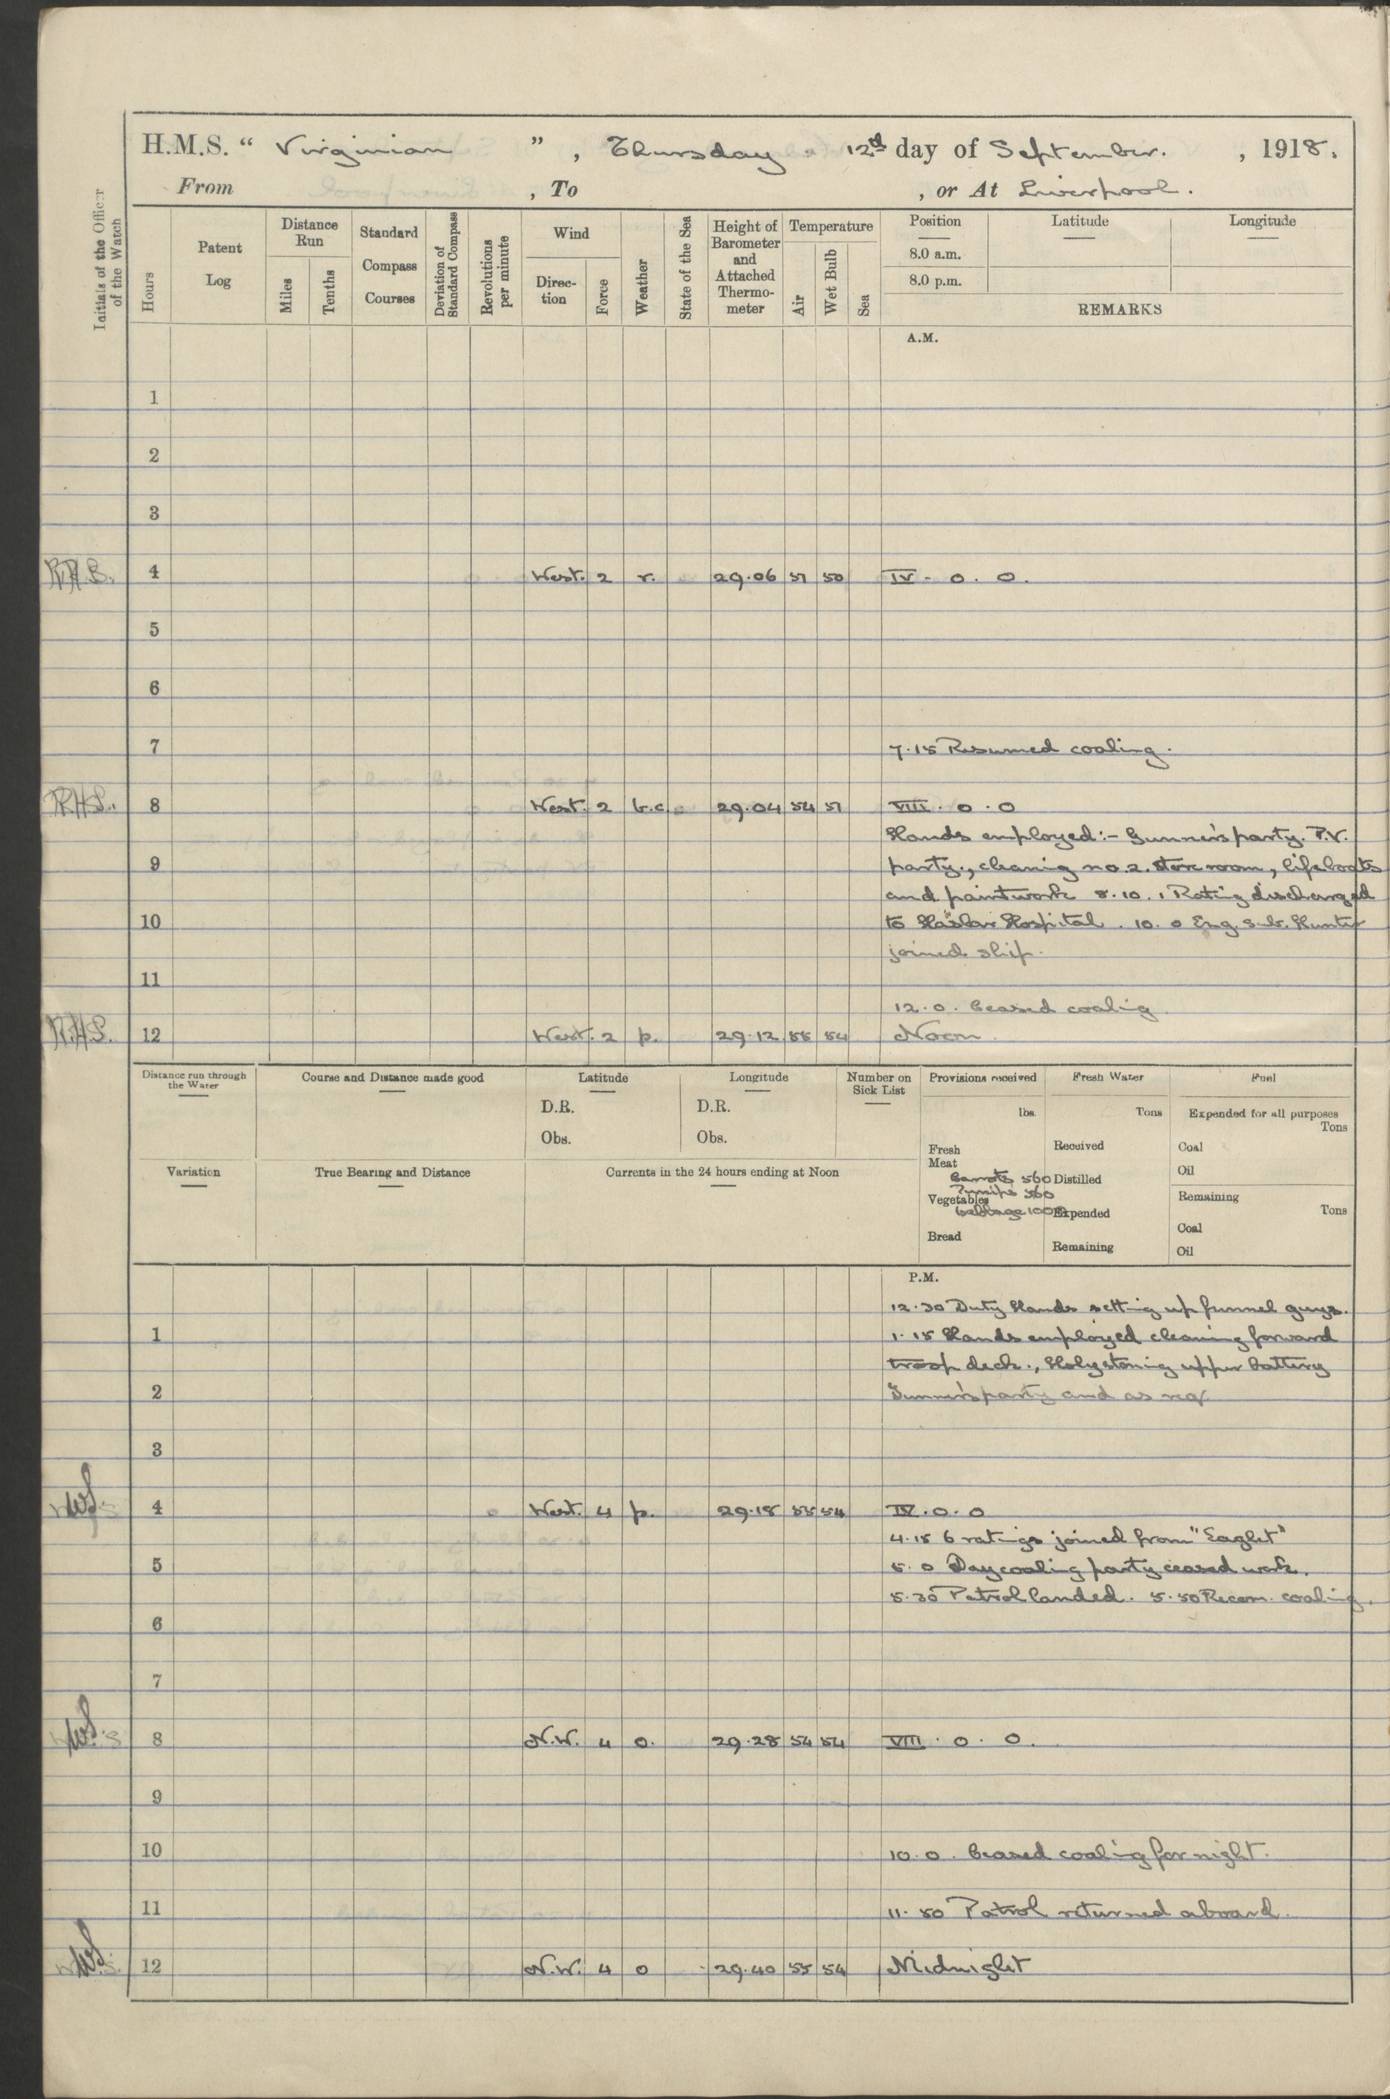 H.M.S. " Virginian " , Thursday 12th day of September. , 1918.
From , To , or At Liverpool.
Initials of the Officer of the Watch
Hours
Patent Log
Distance Run
Miles
Tenths
Standard Compass Courses
Deviation of Standard Compass
Revolutions per minute
Wind
Direc-tion
Force
Weather
State of the Sea
Height of Barometer and Attached Thermo-meter
Temperature
Air
Wet Bulb
Sea
Position Latitude Longitude
8.0 a.m.
8.0 p.m.
REMARKS
A.M.
1
2
3
4 West. 2 r. 29.06 51 50 IV. 0. 0.
5
6
7 7.15 Resumed coaling.
R.H.S. 8 West. 2 b.c. 29.04 54 51 VIII. 0. 0
Hands employed:- Gunner's party. P.V.
9 party., cleaning no. 2. store room, lifeboats
and paintwork 8.10. 1 Rating discharged
10 to Haslar Hospital. 10. 0 Eng. Sub. Hunter
joined ship.
11
12.0. Ceased coaling.
R.H.S. 12 West. 2 p. 29.12 55 54 Noon.
Distance run through the Water
Course and Distance made good
Latitude
D.R.
Obs.
Longitude
D.R.
Obs.
Number on Sick List
Provisions received
lbs.
Fresh Meat
Carrots 560
Turnips 560
Vegetables
Cabbage 1000
Bread
Fresh Water
Tons
Received
Distilled
Expended
Remaining
Fuel
Expended for all purposes
Tons
Coal
Oil
Remaining
Tons
Coal
Oil
Variation
True Bearing and Distance
Currents in the 24 hours ending at Noon
P.M.
12.30 Duty Hands setting up funnel guys.
1 1.15 Hands employed cleaning forward
troop deck., Holystoning upper battery
2 Gunner's party and as req.
3
W.S. 4 West. 4 p. 29.18 55 54 IV. 0. 0
4.15 6 ratings joined from "Eaglet"
5 5.0 Day coaling party ceased work.
5.30 Patrol landed. 5.50 Recom. coaling.
6
7
W.S. 8 N.W. 4 o. 29.28 54 54 VIII. 0. 0.
9
10 10.0. Ceased coaling for night.
11 11.50 Patrol returned aboard.
W.S. 12 N.W. 4 o 29.40 55 54 Midnight